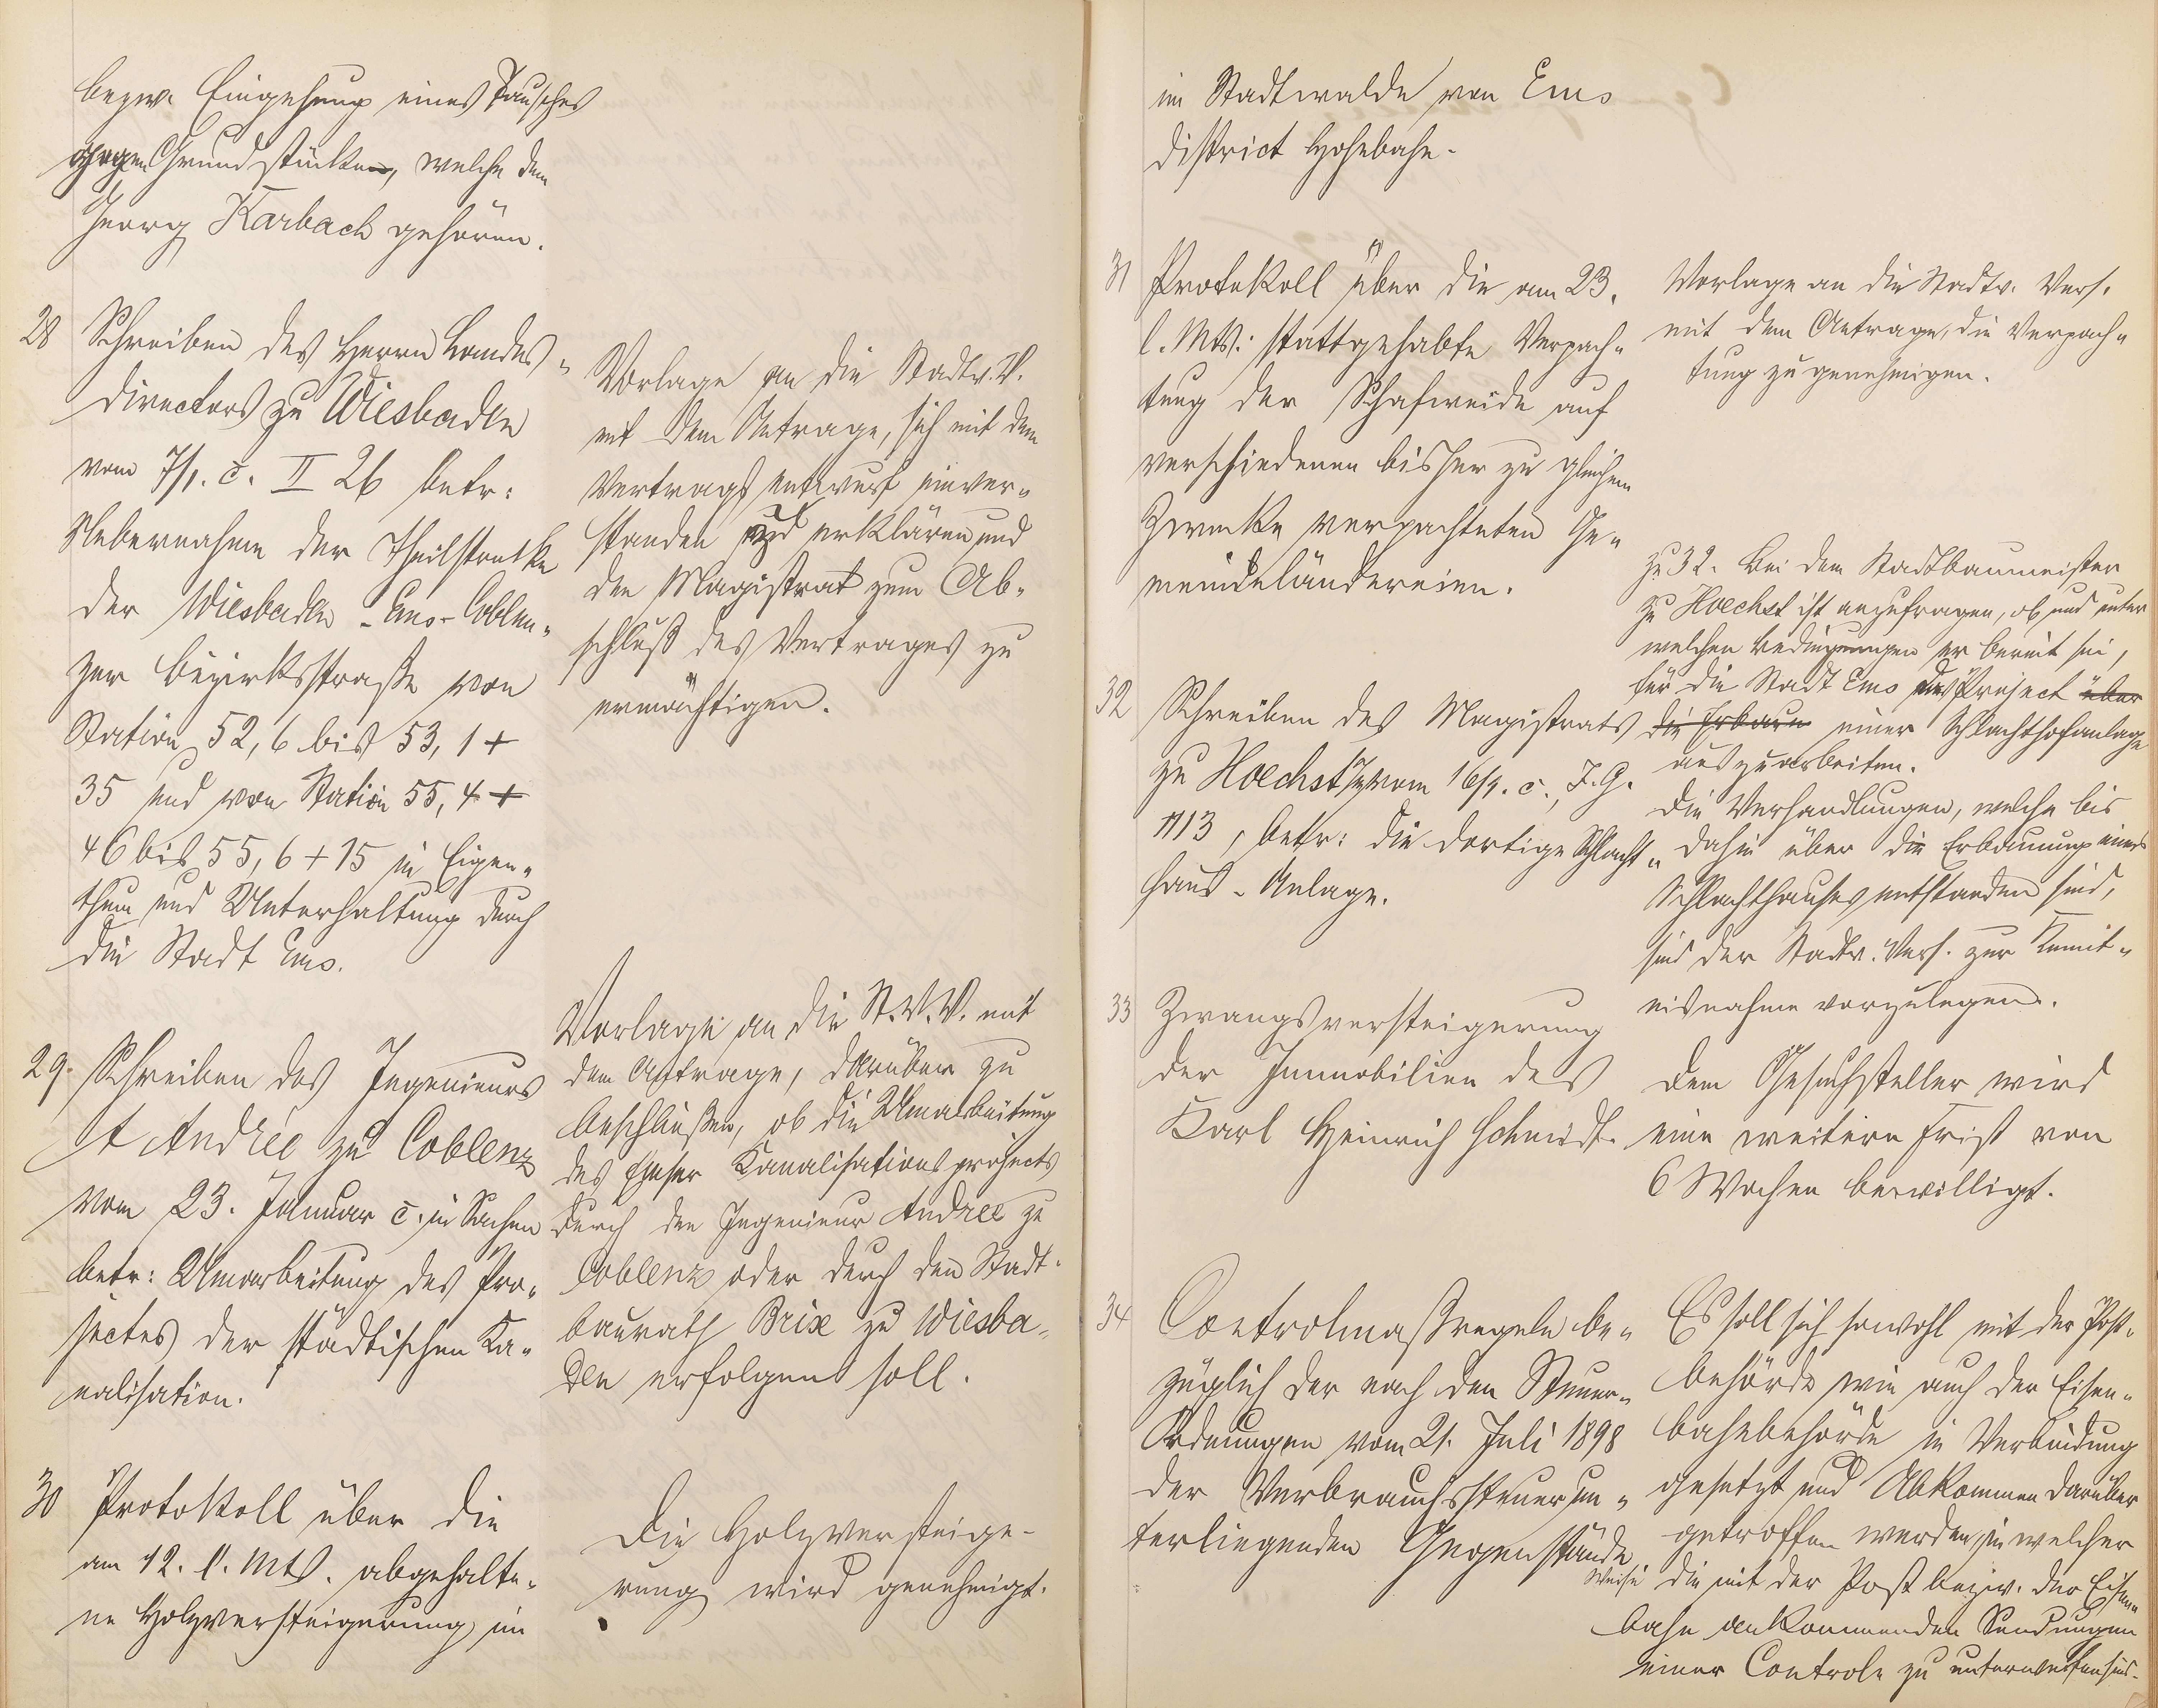 bezw. Eingehung eines Tausches
gegen Grundstücke, welche dem
Georg Karbach gehören.
28 Schreiben des Herrn Landes-
directors zu Wiesbaden
vom 7/1. c. II 26 betr:
Uebernahme der Theilstrecke
der Wiesbaden-Ems-Coblen-
zer Bezirksstraße von
Station 52,6 bis 53,1 +
35 und von Station 55,4 +
46 bis 55,6 + 15 in Eigen-
thum und Unterhaltung durch
die Stadt Ems.
Vorlage an die Stadtv. V.
mit dem Antrage, sich mit dem
Vertragsentwurf einver-
standen zu erklären und
den Magistrat zum Ab-
schluß des Vertrages zu
ermächtigen.
29. Schreiben des Ingenieurs
A Andrée zu Coblenz
vom 23. Januar c. in Sachen
betr: Umarbeitung des Pro-
jectes der städtischen Ka-
nalisation.
Vorlage an die St. V. V. mit
dem Antrage, darüber zu
beschließen, ob die Umarbeitung
des Emser Kanalisationsprojects
durch den Ingenieur Andrée zu
Coblenz oder durch den Stadt-
baurath Brix zu Wiesba-
den erfolgen soll.
30 Protokoll über die
am 12. l. Mts. abgehalte-
ne Holzversteigerung im
Die Holzversteige-
rung wird genehmigt.
im Stadtwalde von Ems
District Hohebahn.
31 Protokoll über die am 23.
l. Mts. stattgehabte Verpach-
tung der Schafweide auf
verschiedenen bisher zu gleichem
Zwecke verpachteten Ge-
meindeländereien.
Vorlage an die Stadtv. Vers.
mit dem Antrage, die Verpach-
tung zu genehmigen.
32 Schreiben des Magistrats
zu Hoechst vom 16/1. c., J.G.
1113, betr: die dortige Schlacht-
haus-Anlage.
zu 32. Bei dem Stadtbaumeister
zu Hoechst ist anzufragen, ob und unter
welchen Bedingungen er bereit sei,
für die Stadt Ems das Project über
die Erbauu einer Schlachthofanlage
auszuarbeiten.
Die Verhandlungen, welche bis
dahin über die Erbauung eines
Schlachthauses entstanden sind,
sind der Stadtv. Vers. zur Kennt-
nisnahme vorzulegen.
33 Zwangsversteigerung
der Immobilien des
Karl Heinrich Schmidt.
Dem Gesuchsteller wird
eine weitere Frist von
6 Wochen bewilligt.
34 Controlmaßregeln be-
züglich der nach den Steuer-
Ordnungen vom 21. Juli 1898
der Verbrauchssteuer un-
terliegenden Gegenstände.
Es soll sich sowohl mit der Post-
behörde wie auch der Eisen-
bahnbehörde in Verbindung
gesetzt und Abkommen darüber
getroffen werden, in welcher
Weise die mit der Post bezw. der Eisen-
bahn ankommenden Sendungen
einer Controle zu unterwerfen sind.